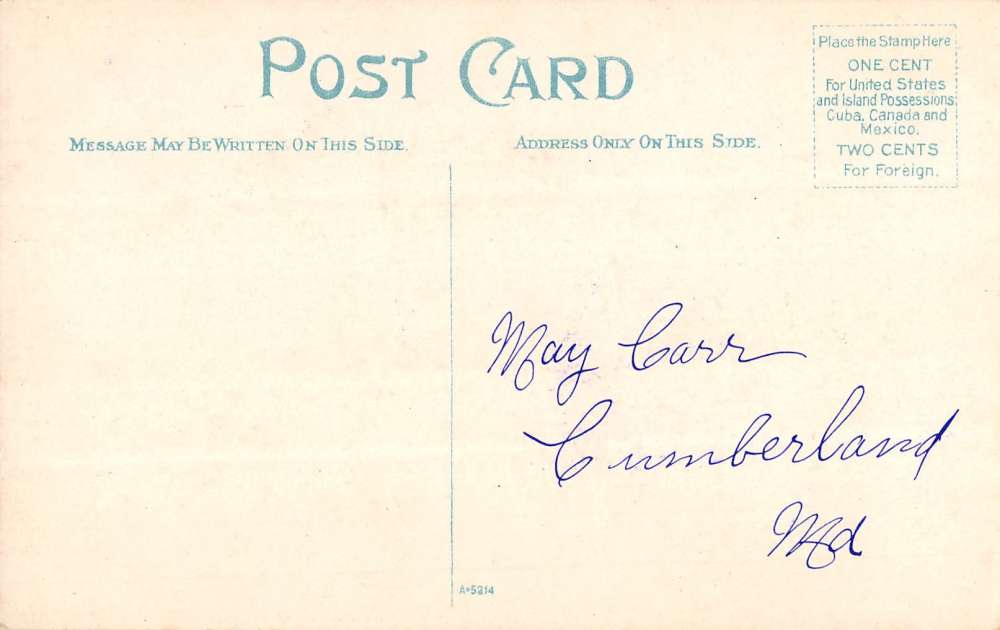 POST CARD
MESSAGE MAY BE WRITTEN ON THIS SIDE.
ADDRESS ONLY ON THIS SIDE.
Place the Stamp Here
ONE CENT
For United States
and Island Possessions,
Cuba, Canada and
Mexico.
TWO CENTS
For Foreign.
May Carr
Cumberland
Md
A-5214